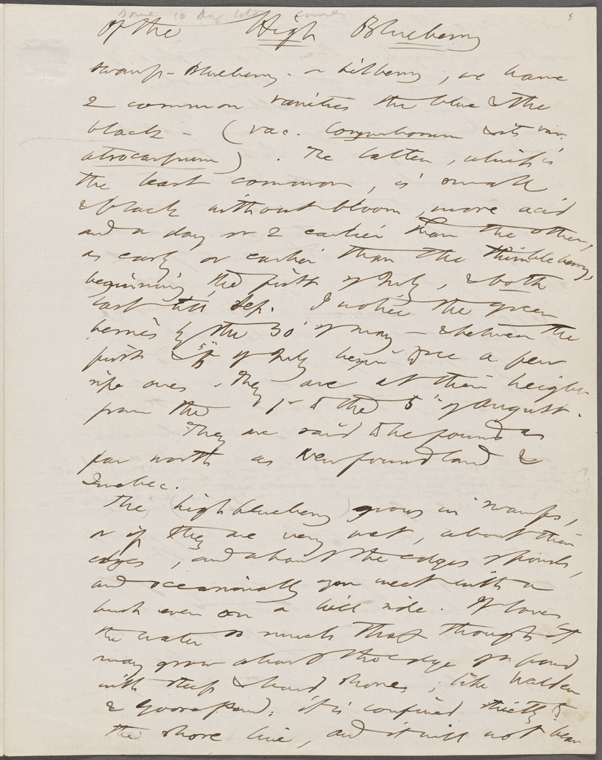 Of the High Blueberry
Swamp-Blueberry - or bilberry, we have
2 common varieties the blue & the
black - (Vac. Corymbosum & its var.
atrocarpum). The latter, which is
the least common, is small
& black without bloom, more acid
and a day or 2 earlier than the other,
as early or earlier than the thimble berry,
beginning the first of July, & both
last till Sep. I notice the green
berries by the 30" of May - & between the
first & of July begin to see a few
ripe ones. They are at their height
from the 1st to the 5" of August.
They are said to be found as
far north as Newfoundland &
Quebec.
The high blueberry grows in swamps,
or if they are very wet, about their
edges, and about the edges of ponds,
and occasionally you meet with a
bush even on a hill side. It loves
the water so much that though it
may grow about the edge of a pond
with steep & hard shores, like Walden
& Goose Pond; it is confined strictly to
the shore line, and it will not bear